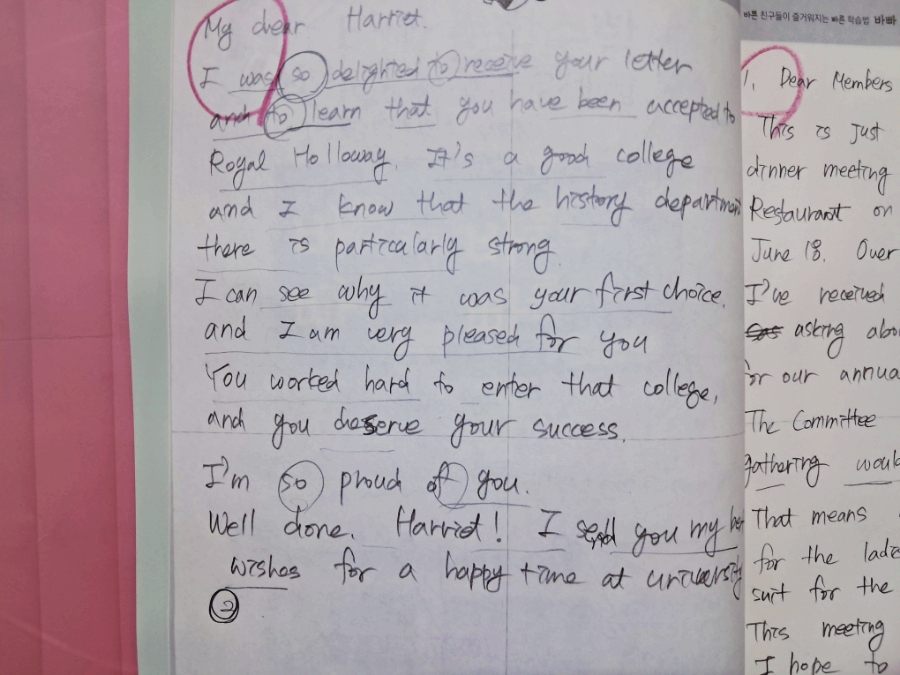 My dear Harriet.
I was so delighted to receive your letter
and to learn that you have been accepted to
Royal Holloway. It's a good college
and I know that the history department
there is particularly strong
I can see why it was your first choice.
and I am very pleased for you
You worked hard to enter that college,
and you deserve your success.
I'm so proud of you.
Well done. Harriet! I send you my
wishes for a happy time at university
2
바른 친구들이 즐거워지는 빠른 학습법 바빠
1. Dear Members
This is just
dinner meeting
Restaurant on
June 18. Over
I've received
asking
for our
The Committee
gathering would
That means
for the
suit for the
This meeting
I hope to